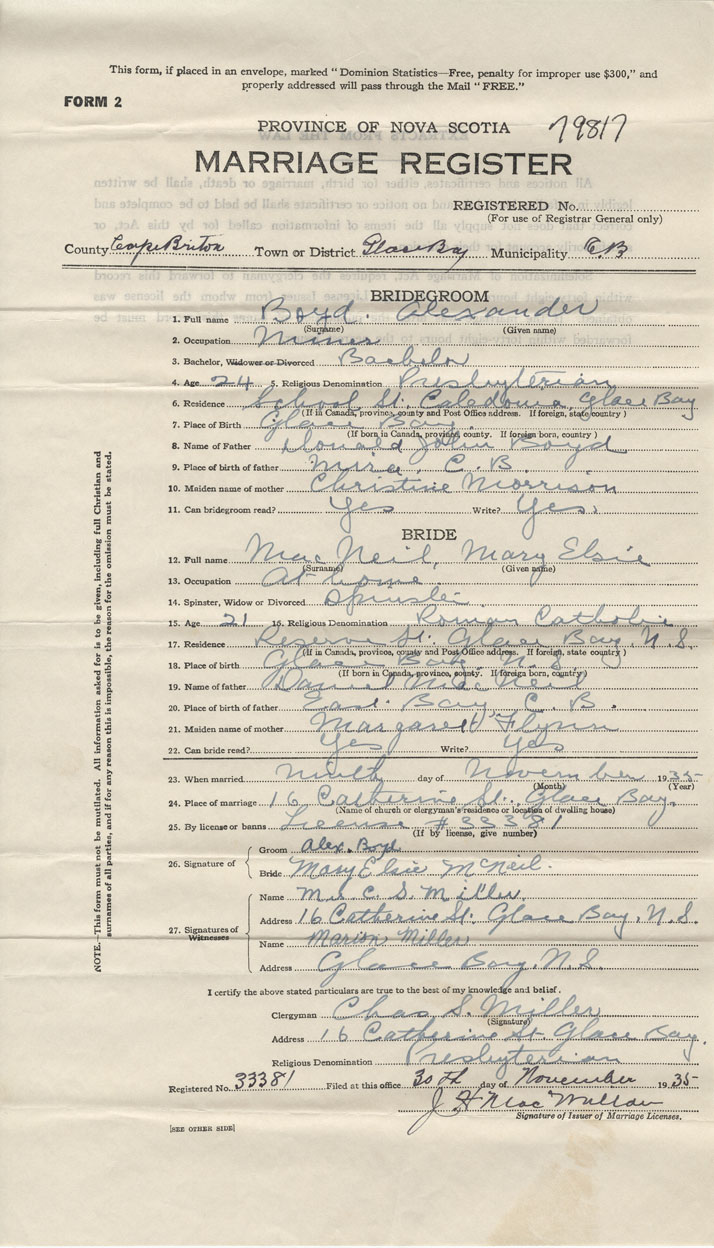 This form, if placed in an envelope, marked "Dominion Statistics—Free, penalty for improper use $300," and
properly addressed will pass through the Mail "FREE."
FORM 2
PROVINCE OF NOVA SCOTIA 79817
MARRIAGE REGISTER
REGISTERED No.
(For use of Registrar General only)
County Cape Briton Town or District Glace Bay Municipality C.B
BRIDEGROOM
1. Full name Boyd. Alexander
(Surname) (Given name)
2. Occupation Miner
3. Bachelor, Widower or Divorced Bachelor
4. Age 24 5. Religious Denomination Presbyterian
6. Residence School St. Caledonia, Glace Bay
(If in Canada, province, county and Post Office address. If foreign, state country)
7. Place of Birth Glace Bay.
(If born in Canada, province, county. If foreign born, country)
8. Name of Father Donald John Boyd
9. Place of birth of father Mira, C. B.
10. Maiden name of mother Christine Morrison
11. Can bridegroom read? Yes Write? Yes.
BRIDE
12. Full name MacNeil, Mary Elsie
(Surname) (Given name)
13. Occupation At home.
14. Spinster, Widow or Divorced Spinster
15. Age 21 16. Religious Denomination Roman Catholic
17. Residence Reserve St. Glace Bay, N.S.
(If in Canada, province, county and Post Office address. If foreign, state country)
18. Place of birth Glace Bay, N.S.
(If born in Canada, province, county. If foreign born, country)
19. Name of father Daniel MacNeil
20. Place of birth of father East Bay, C. B.
21. Maiden name of mother Margaret Flynn
22. Can bride read? Yes Write? Yes
23. When married Ninth day of November 1935
(Month) (Year)
24. Place of marriage 16 Catherine St., Glace Bay.
(Name of church or clergyman's residence or location of dwelling house)
25. By license or banns License #33381
(If by license, give number)
26. Signature of
Groom Alex. Boyd
Bride Mary Elsie McNeil.
27. Signatures of Witnesses
Name Mrs C. S. Miller
Address 16 Catherine St. Glace Bay, N.S.
Name Marion Miller
Address Glace Bay, N.S.
I certify the above stated particulars are true to the best of my knowledge and belief.
Clergyman Chas S. Miller
(Signature)
Address 16 Catherine St. Glace Bay.
Religious Denomination Presbyterian
Registered No. 33381 Filed at this office 30th day of November 1935
J H
Signature of Issuer of Marriage Licenses.
[SEE OTHER SIDE]
NOTE.—This form must not be mutilated. All information asked for is to be given, including full Christian and
surnames of all parties, and if for any reason this is impossible, the reason for the omission must be stated.